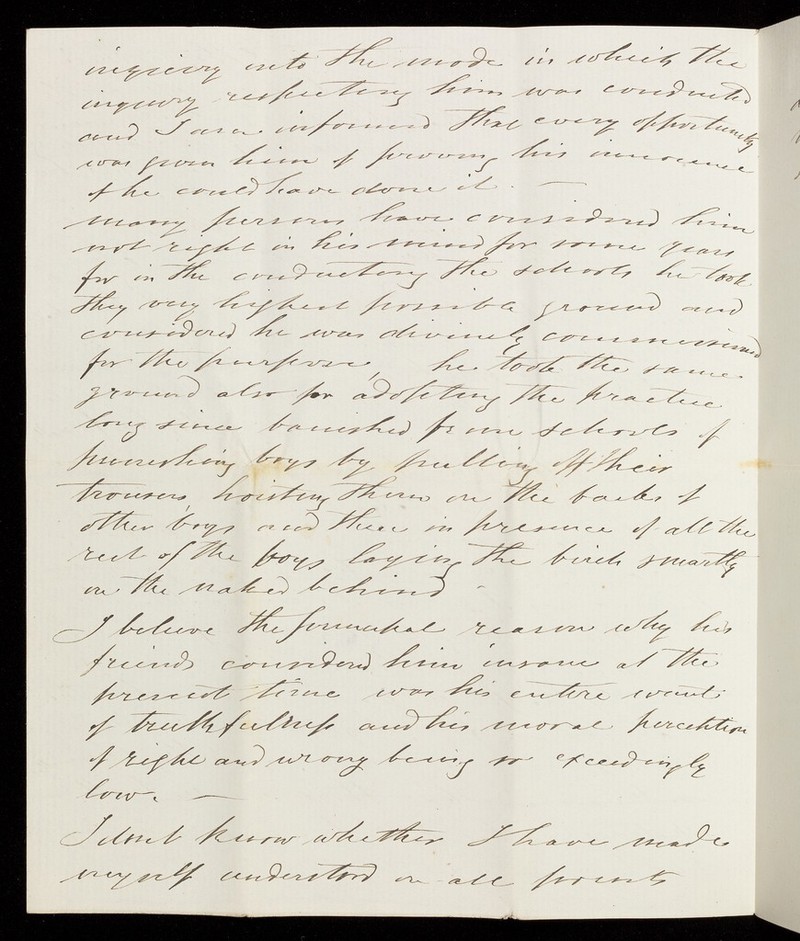 inquiry into the mode in which the
inquiry respecting him was conducted
and I am informed that every opportunity
was given him of proving his innocence
if he could have done it. —
many persons have considered him
not right in his mind for some years
for in the conducting the schools he took
they very highest possible ground and
considered he was divinely commissioned
for the purpose, he took the same
ground also for adopting the practice
long since banished from schools of
punishing boys by pulling off their
trousers, hoisting them on the backs of
other boys and then in presence of all the
rest of the boys laying the birch smartly
on the naked behind -
I believe the principal reason why his
friends considered him insane at the
present time was his entire want
of truthfulness and his moral perception
of right and wrong being so exceedingly
low. —
I dont know whether I have made
myself understood on all points